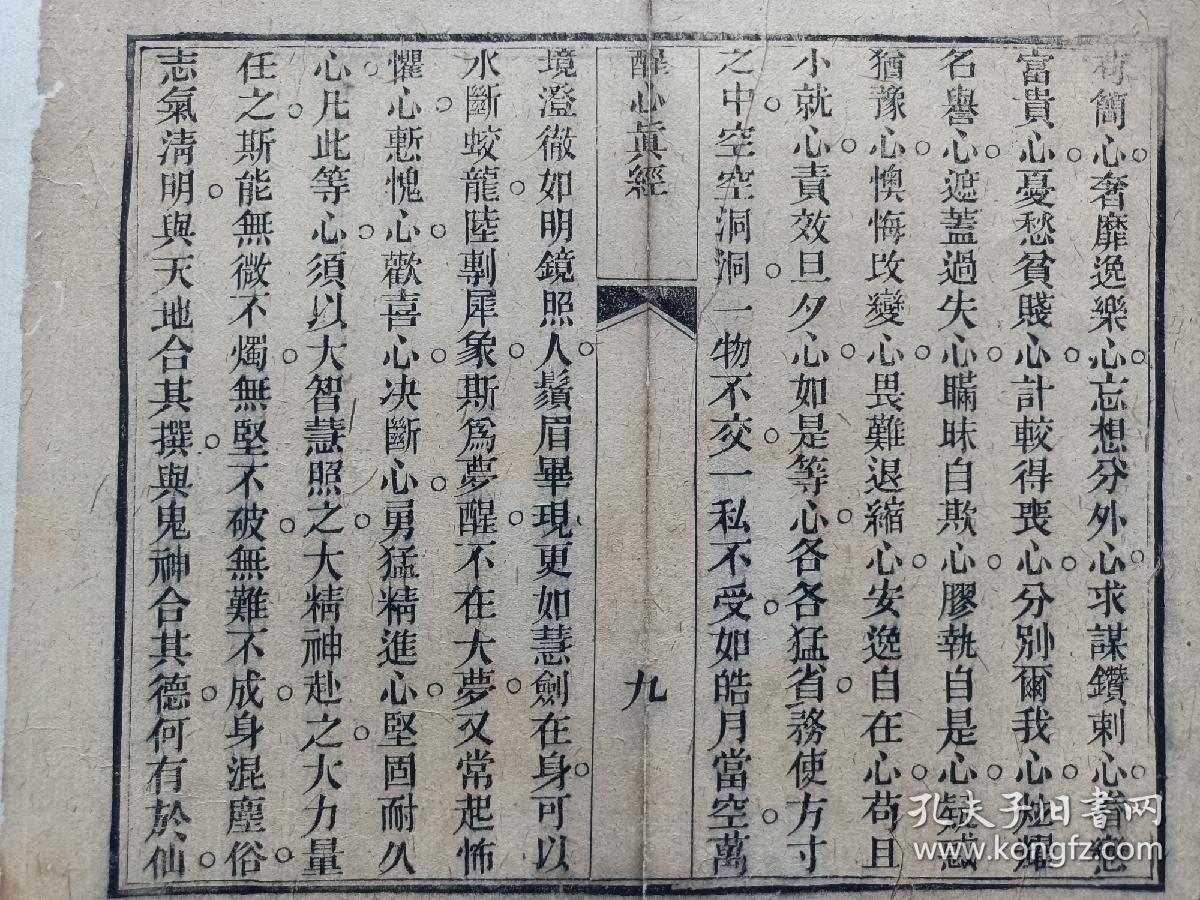 苟簡心奢靡逸樂心忘想分外心求謀鑽刺心着戀
富貴心憂愁貧賤心計較得喪心分別爾我心炫耀
名譽心遮蓋過失心瞞昧自欺心膠執自是心疑惑
猶豫心懊悔改變心畏難退縮心安逸自在心苟且
小就心責效旦夕心如是等心各各猛省務使方寸
之中空空洞洞一物不交一私不受如皓月當空萬
醒心真經
九
境澄徹如明鏡照人鬚眉畢現更如慧劍在身可以
水斷蛟龍陸剸犀象斯為夢醒不在大夢又常起怖
懼心慙愧心歡喜心决斷心勇猛精進心堅固耐久
心凡此等心須以大智慧照之大精神赴之大力量
任之斯能無微不燭無堅不破無難不成身混塵俗
志氣清明與天地合其撰與鬼神合其德何有於仙
孔夫子旧書网
www.kongfz.com